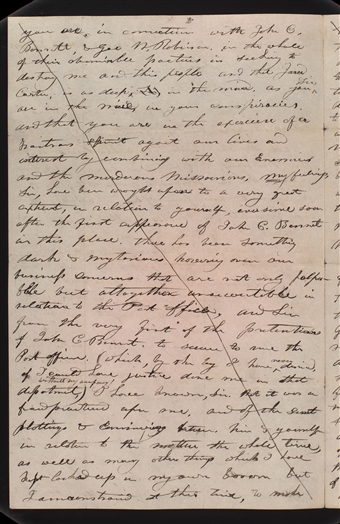 2
you are, in connection with John C.
Bennett, & Geo W. Robinson, in the whole
of their abominable practices in seeking to
destroy me and this people and that Jared
Carter, is as deep, in the mud, as you, Sir,
are in the mire, in your conspiracies.
and that you are in the exercise of a
traitrous spirit against our lives and
interest by combining with our Enemies
and the murderous Missourians, my feelings
Sir, have been wrought upon to a very great
extent, in relation to yourself, ever since soon
after the first appearance of John C. Bennet
in this place. there has been something
dark & mysterious hovering over our
business concerns that are not only palpa
ble but altogether unaccountable in
relation to the Post office, and Sir
from the very first of the pretentions
of John C. Bennet. to secure to me the
Post office, (which, by the by I have, desired,
if I could have justice done me in that
department) I have known, Sir. that it was a
fraud practised upon me, and of the secret
plottings & conniving between him & yourself
in relation to the matter the whole time,
as well as many other things which I have
kept locked up in my own bosom but
I am constrained at this time, to make